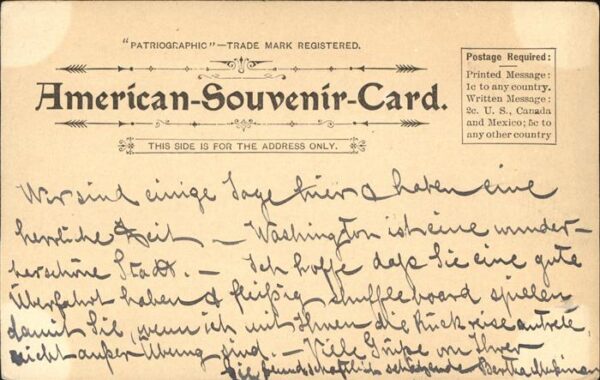 "PATRIOGRAPHIC"—TRADE MARK REGISTERED.
American-Souvenir-Card.
THIS SIDE IS FOR THE ADDRESS ONLY.
Postage Required:
Printed Message:
1c to any country.
Written Message:
2c. U. S., Canada
and Mexico; 5c to
any other country
Wir sind einige Tage hier & haben eine
herrliche Zeit — Washington ist eine wunder-
herschöne Stadt. — Ich hoffe daß Sie eine gute
Überfahrt haben & fleißig shuffleboard spielen
damit Sie, wenn ich mit Ihnen die Rückreise antrete,
nicht außer Übung sind. — Viele Grüße von Ihrer
Sie freundschaftlich schätzende Bertha